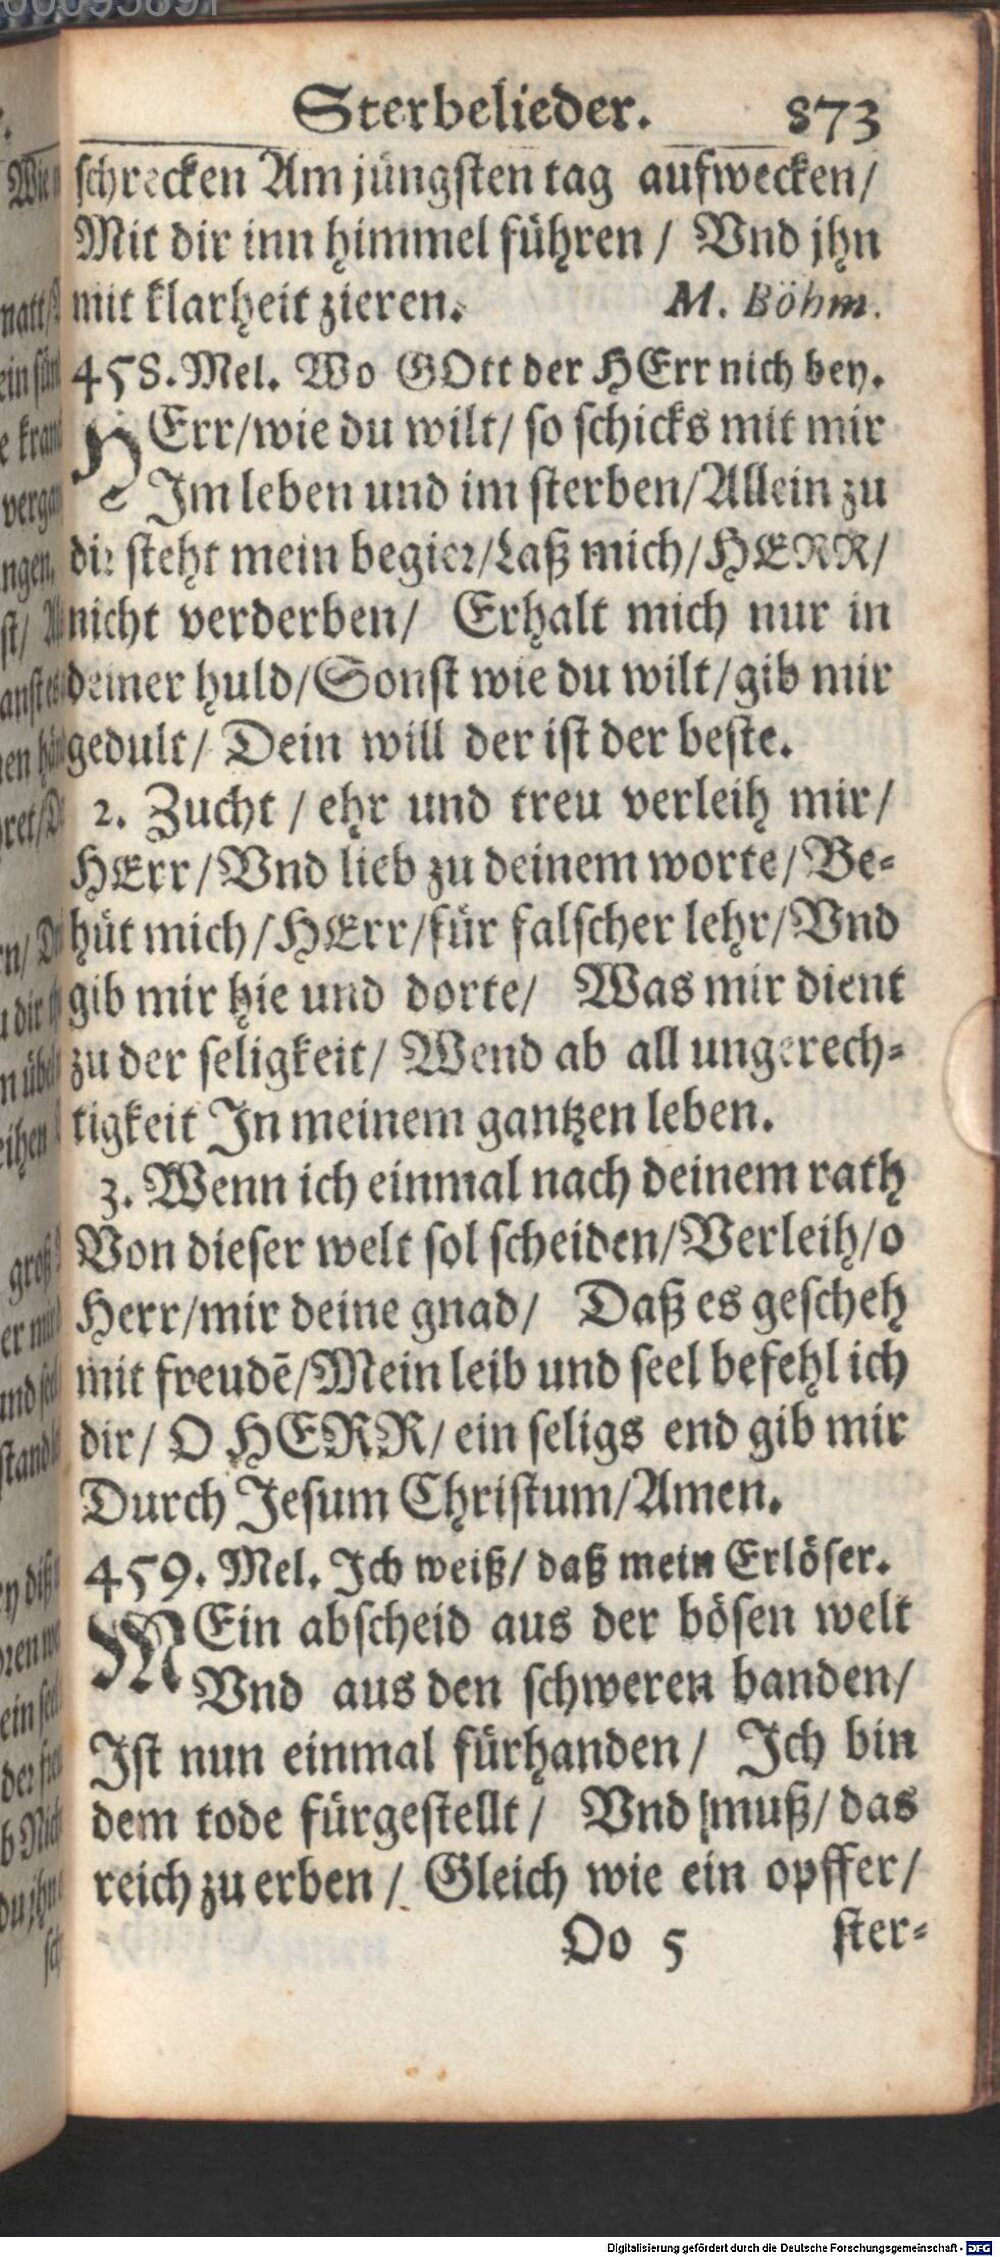 Sterbelieder. 873
schrecken Am jüngsten tag aufwecken/
Mit dir inn himmel führen / Vnd jhn
mit klarheit zieren. M. Böhm.
458. Mel. Wo GOtt der HErr nich bey.
HErr/wie du wilt/ so schicks mit mir
Im leben und im sterben/Allein zu
dir steht mein begier/Laß mich/HERR/
nicht verderben/ Erhalt mich nur in
deiner huld/Sonst wie du wilt/gib mir
gedult/ Dein will der ist der beste.
2. Zucht / ehr und treu verleih mir/
HErr/Vnd lieb zu deinem worte/Be-
hüt mich/HErr/für falscher lehr/Vnd
gib mir hie und dorte/ Was mir dient
zu der seligkeit/ Wend ab all ungerech-
tigkeit In meinem gantzen leben.
3. Wenn ich einmal nach deinem rath
Von dieser welt sol scheiden/Verleih/o
Herr/mir deine gnad/ Daß es gescheh
mit freudē/Mein leib und seel befehl ich
dir/ O HERR/ ein seligs end gib mir
Durch Jesum Christum/Amen.
459. Mel. Ich weiß/ daß mein Erlöser.
MEin abscheid aus der bösen welt
Vnd aus den schweren banden/
Ist nun einmal fürhanden/ Ich bin
dem tode fürgestellt/ Vnd muß/das
reich zu erben/ Gleich wie ein opffer/
Oo 5 ster-
Digitalisierung gefördert durch die Deutsche Forschungsgemeinschaft - DFG